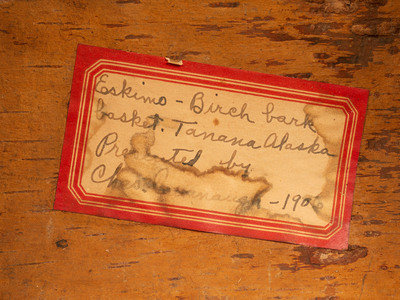 Eskimo - Birch bark
basket. Tanana Alaska
Presented by
Chas. - 1906